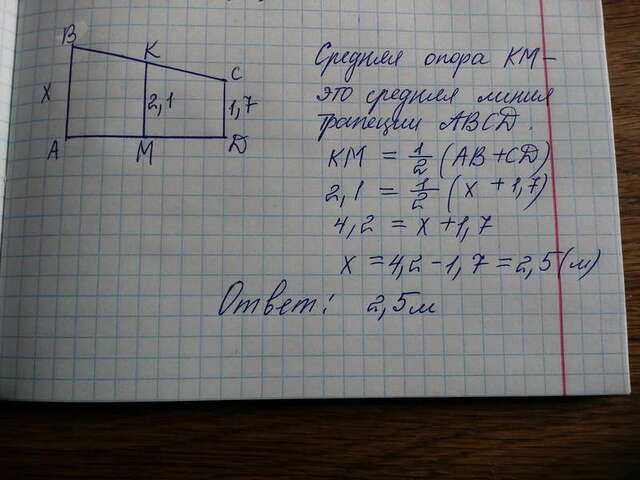 B
K
C
x
2,1
1,7
A
M
D
Средняя опора KM –
это средняя линия
трапеции ABCD.
KM = 1/2 (AB + CD)
2,1 = 1/2 (x + 1,7)
4,2 = x + 1,7
x = 4,2 - 1,7 = 2,5 (м)
Ответ: 2,5 м